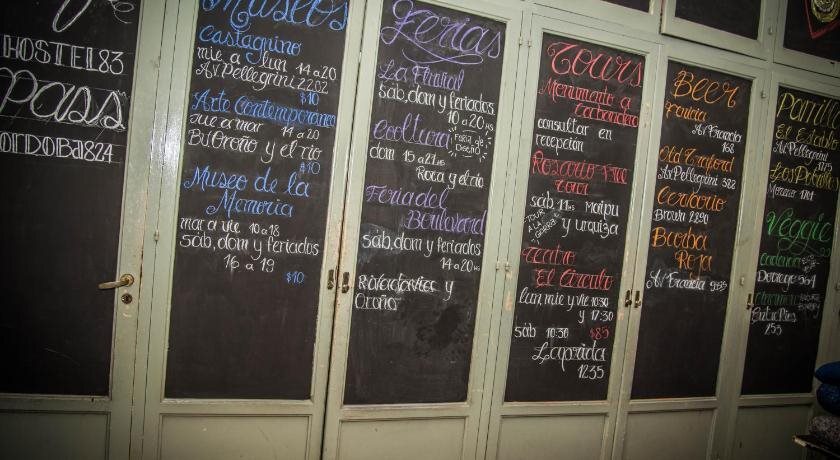 HOSTEL83
pass
ORDOBA824
Museos
castagnino
mie a lun 14 a 20
Av.Pellegrini 2202
$10
Arte Contemporaneo
jue a mar 14 a 20
Bv.Oroño y el río
$10
Museo de la
Memoria
mar a vie 10 a 18
sáb, dom y feriados
16 a 19
$10
Ferias
La Fluvial
sáb, dom y feriados
10 a 20 hs
Cooltura
Feria de
Diseño
dom 15 a 21 hs
Roca y el río
Feria del
Boulevard
sáb, dom y feriados
14 a 20 hs
Rivadavia y
Oroño
Tours
Monumento a
la bandera
consultar en
recepción
Rosario Free
tour
sáb 11 hs Maipu
y urquiza
TOUR
A LA
GORRA
Teatro
El Círculo
lun, mie y vie 10:30
y 17:30
sáb 10:30 $85
Laprida
1235
Beer
Av.Francia
168
Old Traford
Av.Pellegrini 582
Cervario
Brown 2290
Barba
Roja
Av.Francia
Parrill
El Establo
Av.Pellegrini
1175
Los Patrio
Moreno 1701
Veggie
Dorrego 564
Entre Rios
255